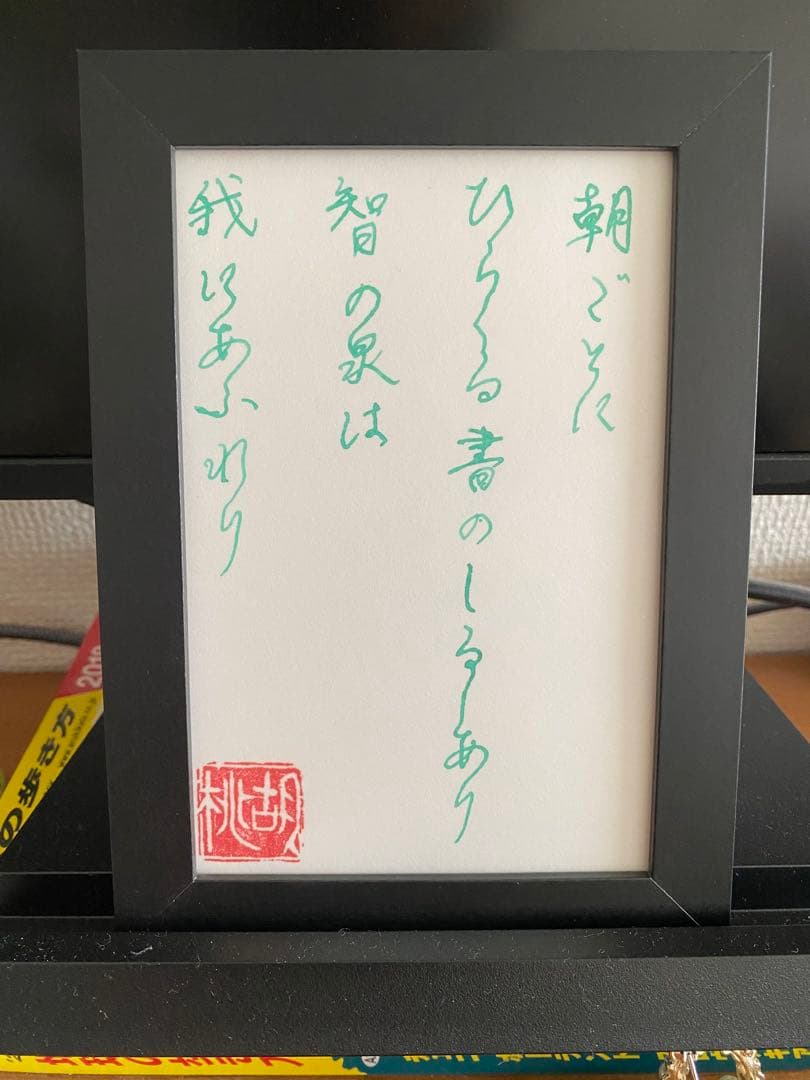 朝ごとに
ひらくる書のしるしあり
智の泉は
我にあふれり
胡桃
の歩き方
2019